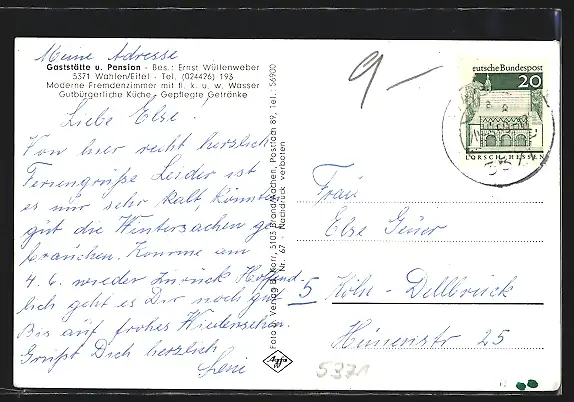 Meine Adresse
Gaststätte u. Pension - Bes.: Ernst Wüllenweber
5371 Wahlen/Eifel - Tel. (024426) 193
Moderne Fremdenzimmer mit fl. k. u. w. Wasser
Gutbürgerliche Küche - Gepflegte Getränke
Liebe Else!
Von hier recht herzlich
Feriengrüße Leider ist
es nur sehr kalt, könnten
gut die Wintersachen ge
brauchen. Komme am
4. 6. wieder zurück Hoffend
lich geht es Dir noch gut
Bis auf frohes Wiedersehen.
Grüßt Dich herzlich
Leni
Foto u. Verlag B. Korr, 5105 Brand/Aachen, Postfach 89, Tel.: 56900
Nr. 67 - Nachdruck verboten
Agfa
9 —
eutsche Bundespost
20
LORSCH/HESSEN
537
Frau
Else Geuer
5 Köln - Dellbrück
Hünenstr 25
5371